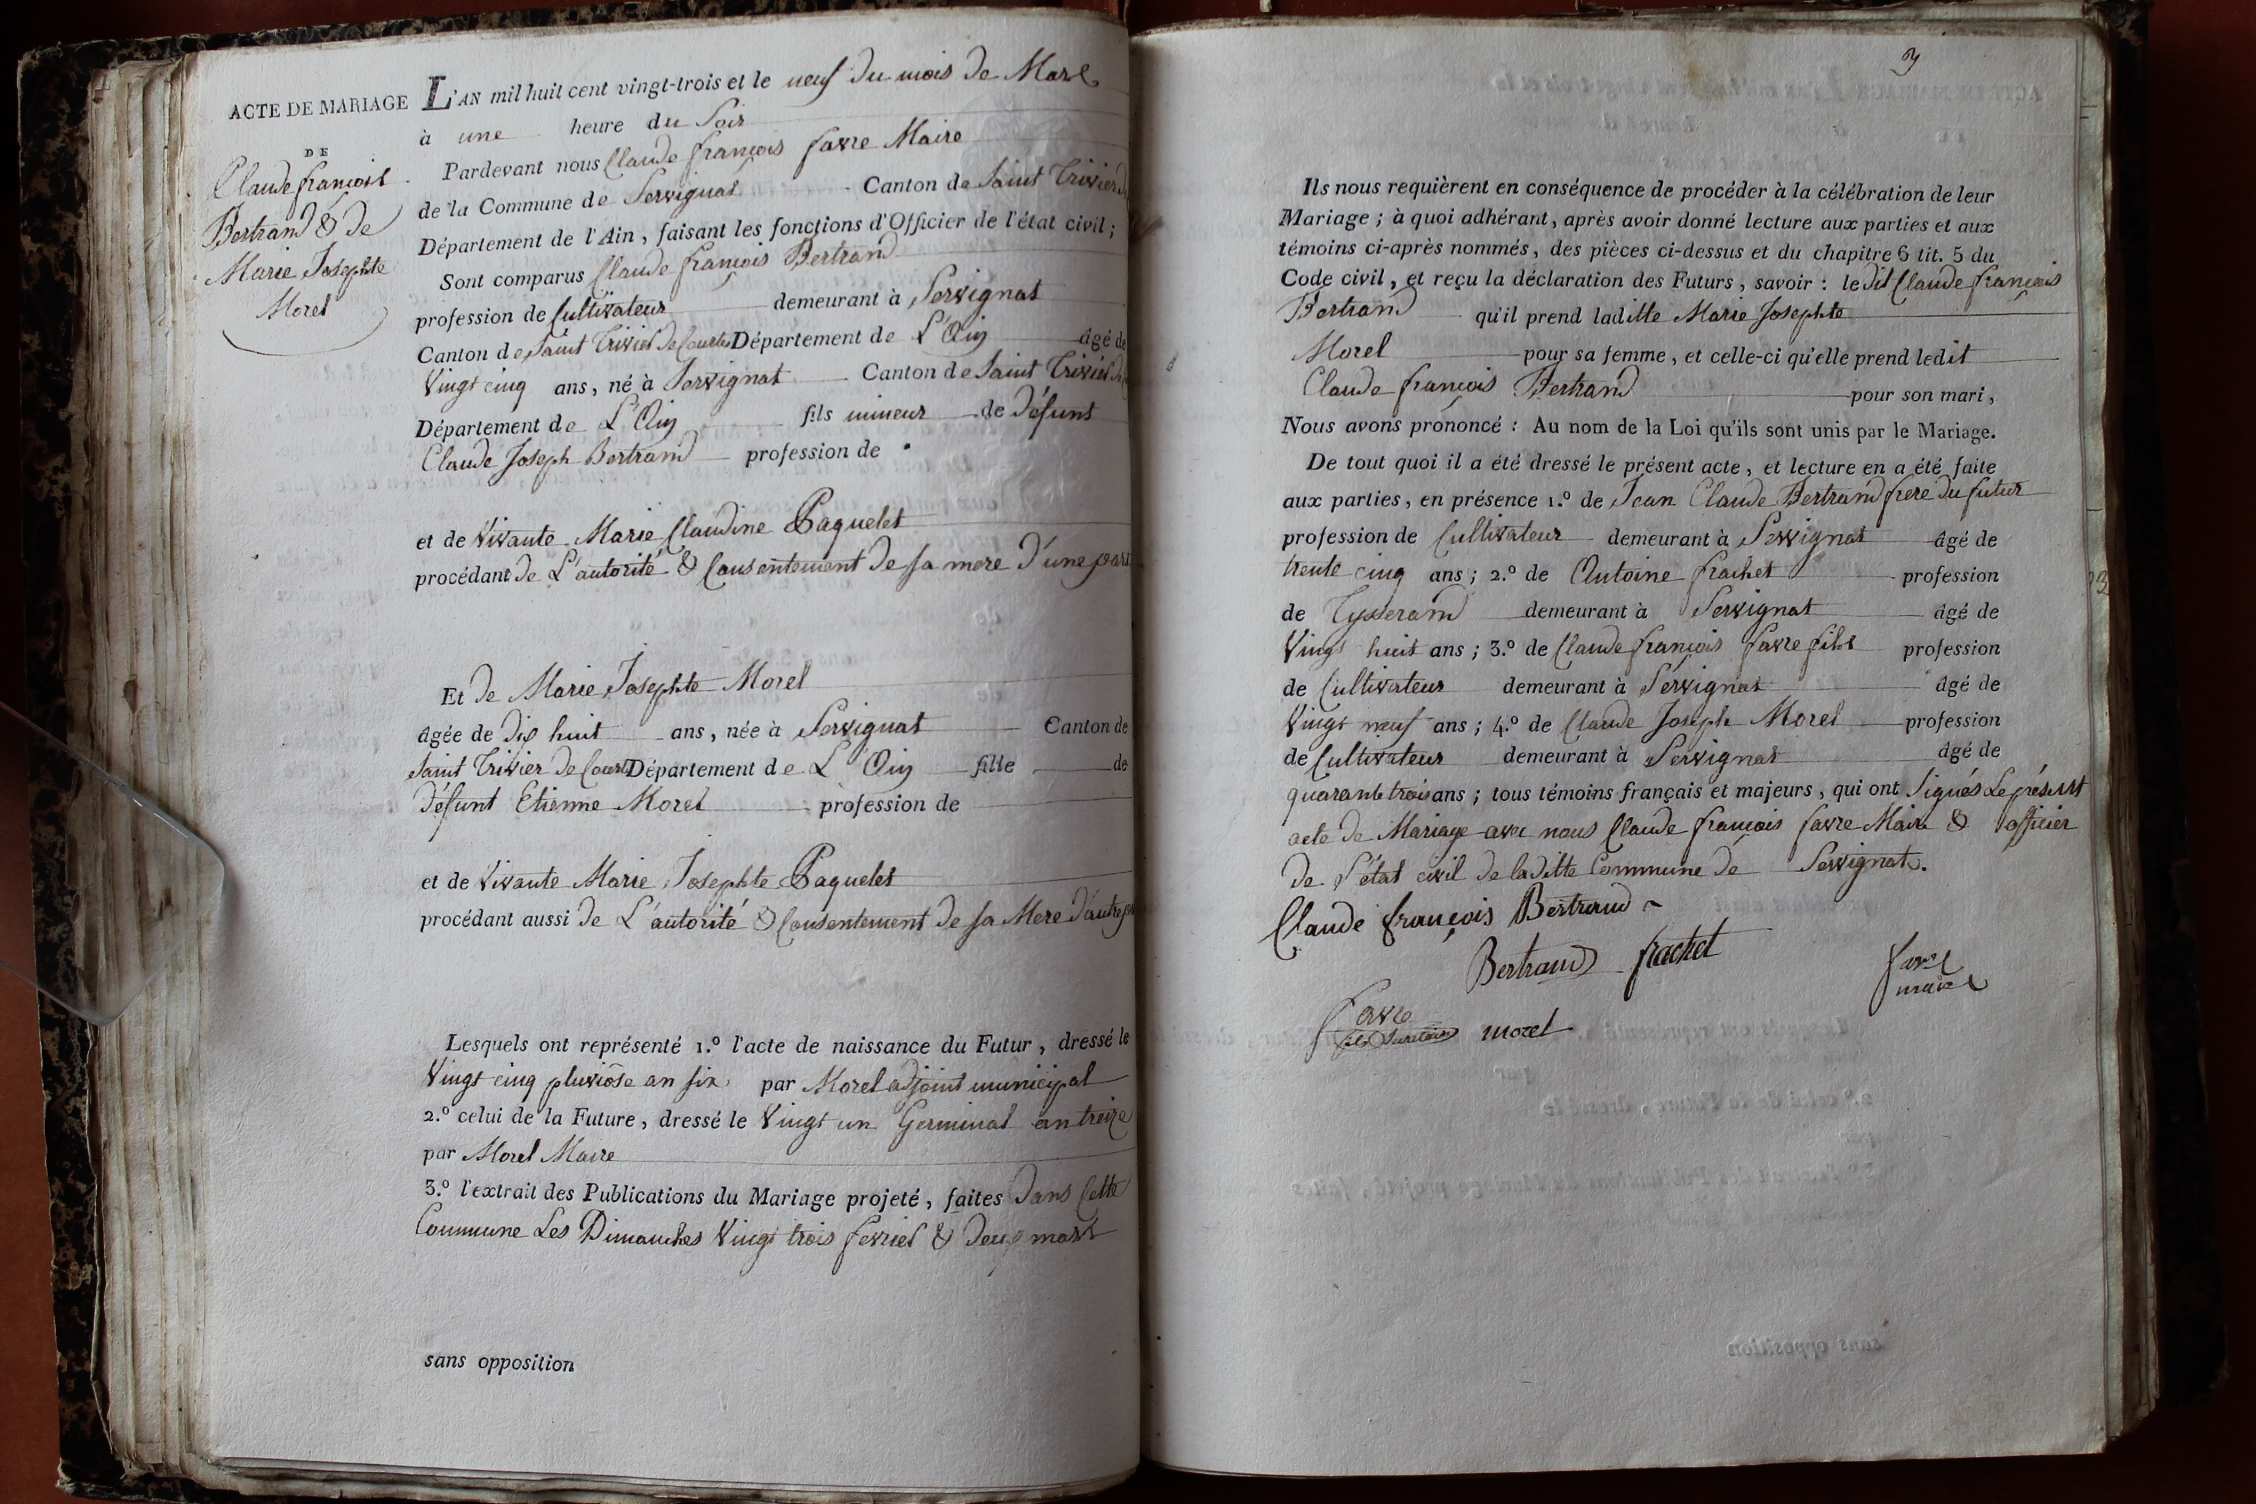 ACTE DE MARIAGE
DE
Claude françois
Bertrand & de
Marie Josephte
Morel
L'AN mil huit cent vingt-trois et le neuf du mois de Mars
à une heure du Soir
Pardevant nous Claude françois favre Maire
de la Commune de Servignat Canton de Saint Trivier de
Département de l'Ain, faisant les fonctions d'Officier de l'état civil;
Sont comparus Claude françois Bertrand
profession de Cultivateur demeurant à Servignat
Canton de Saint Trivier de Courtes Département de L'Ain âgé de
Vingt cinq ans, né à Servignat Canton de Saint Trivier de
Département de L'Ain fils mineur de défunt
Claude Joseph Bertrand profession de
et de Vivante Marie Claudine Paquelet
procédant de L'autorité & Consentement de sa mere d'une part
Et de Marie Josephte Morel
âgée de dix huit ans, née à Servignat Canton de
Saint Trivier de Courtes Département de L'Ain fille de
défunt Etienne Morel profession de
et de Vivante Marie Josephte Paquelet
procédant aussi de L'autorité & Consentement de sa Mere d'autre
Lesquels ont représenté 1.º l'acte de naissance du Futur, dressé le
Vingt cinq pluviôse an six par Morel adjoint municipal
2.º celui de la Future, dressé le Vingt un Germinal an treize
par Morel Maire
3.º l'extrait des Publications du Mariage projeté, faites dans Cette
Commune Les Dimanches Vingt trois fevrier & deux mars
sans opposition
Ils nous requièrent en conséquence de procéder à la célébration de leur
Mariage; à quoi adhérant, après avoir donné lecture aux parties et aux
témoins ci-après nommés, des pièces ci-dessus et du chapitre 6 tit. 5 du
Code civil, et reçu la déclaration des Futurs, savoir: le dit Claude françois
Bertrand qu'il prend laditte Marie Josephte
Morel pour sa femme, et celle-ci qu'elle prend ledit
Claude françois Bertrand pour son mari,
Nous avons prononcé: Au nom de la Loi qu'ils sont unis par le Mariage.
De tout quoi il a été dressé le présent acte, et lecture en a été faite
aux parties, en présence 1.º de Jean Claude Bertrand frere du futur
profession de Cultivateur demeurant à Servignat âgé de
trente cinq ans; 2.º de Antoine frachet profession
de Tysserand demeurant à Servignat âgé de
Vingt huit ans; 3.º de Claude françois favre fils profession
de Cultivateur demeurant à Servignat âgé de
Vingt neuf ans; 4.º de Claude Joseph Morel profession
de Cultivateur demeurant à Servignat âgé de
quarante trois ans; tous témoins français et majeurs, qui ont Signés Le présent
acte de Mariage avec nous Claude françois favre Maire & officier
de L'état civil de laditte Commune de Servignat.
Claude françois Bertrand
Bertrand frachet
favre
maire
favre
morel